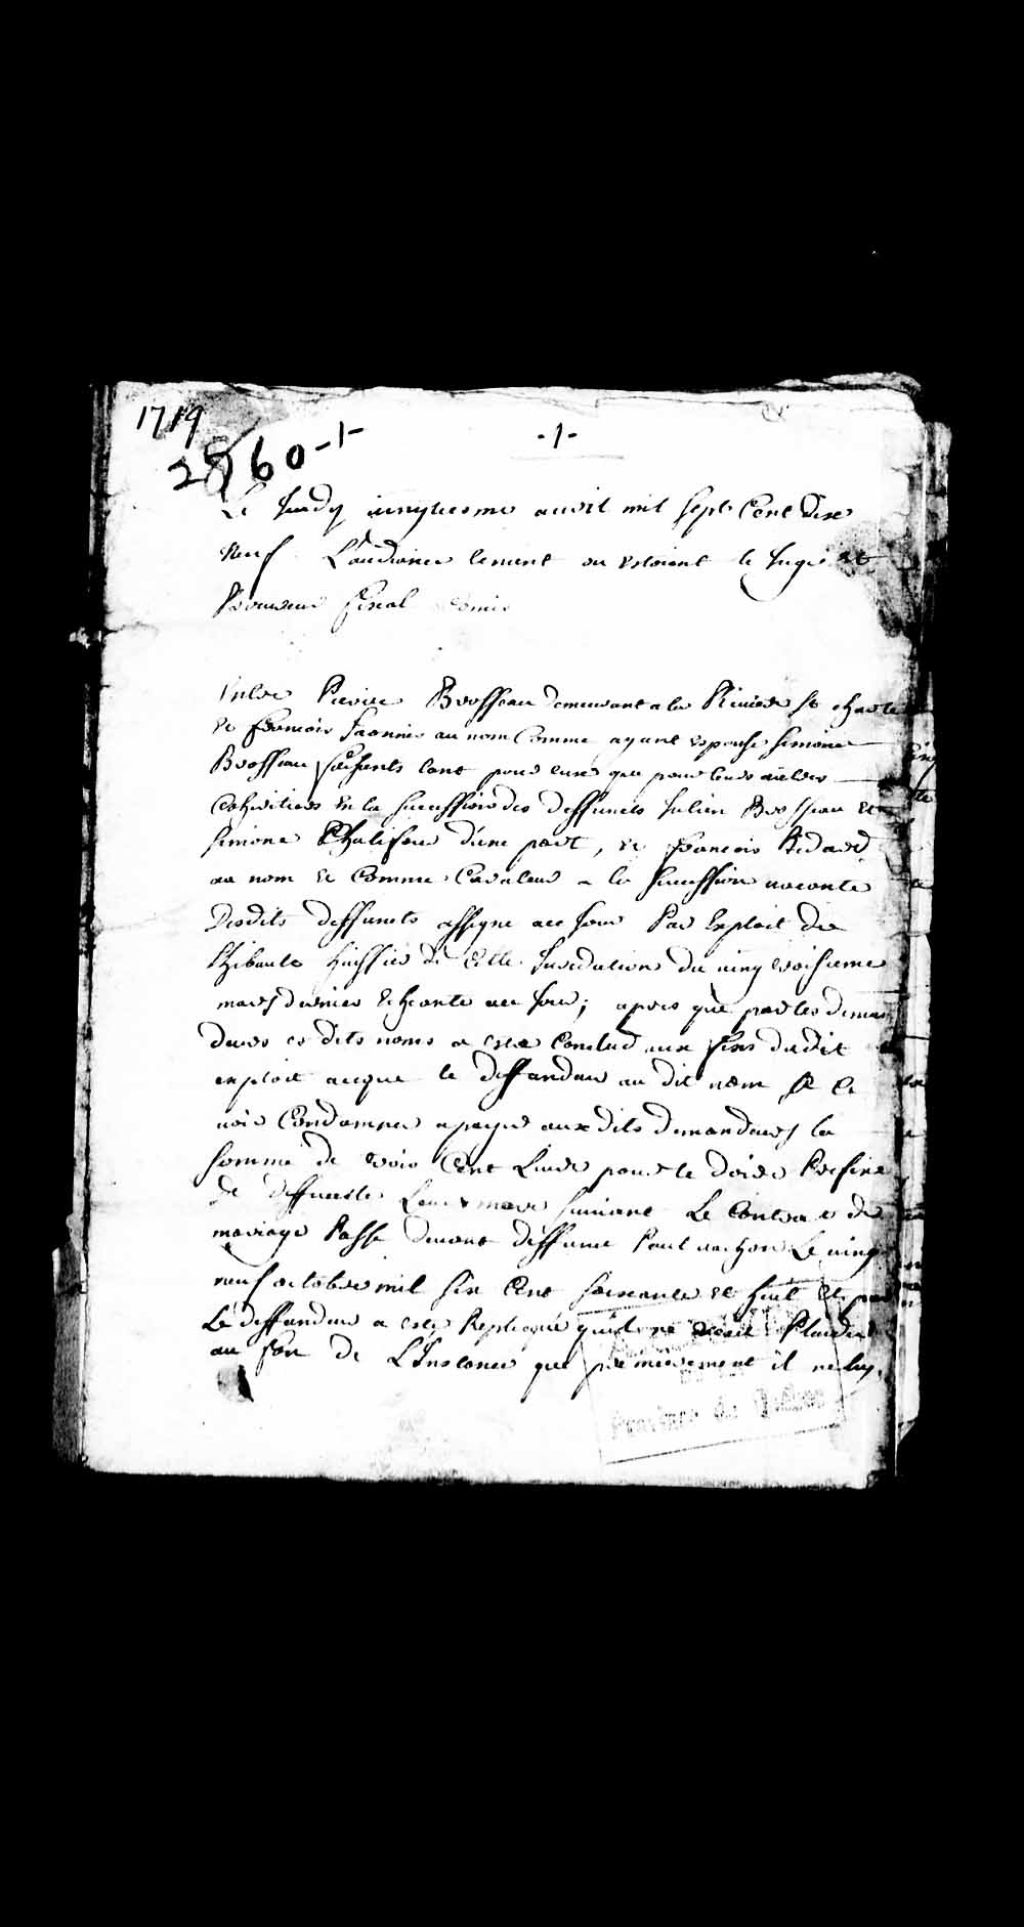 1719
2860-1-
-1-
Le Jeudy vingtiesme avril mil sept Cent dix
neuf L'audiance tenant ou estoient le Juge et
Procureur fiscal
Entre Pierre Brosseau demeurant a la Riviere St charle
et francois Jaonnes au nom Comme ayant espousé Simone
Brosseau faisants tant pour eux que pour leurs autres
Cohéritiers en la succession des deffuncts Julien Brosseau et
Simone Chalifour d'une part, et francois Bedard
au nom et Comme Curateur a la succession vacante
Desdits deffuncts assigné a ce Jour Par Exploit de
Thibault huissier de Cette Jurisdiction du vingt troisieme
mars dernier Echeante a ce Jour; apres que par les deman
deurs es dits noms a esté Conclud aux fins dudit
exploit a ce que le deffandeur au dit nom se
voir Condamner a payer aux dits demandeurs la
somme de trois Cent Livres pour le doire Prefixe
de deffuncte Leur mere suivant Le Contra et de
mariage Passé devant deffunct Paul vachon Le vingt
neuf octobre mil six Cent soixante et huit Et par
Le deffandeur a esté Repliqué qu'il ne Plaider
au fon de L'Instance que premierement il ne luy
Province de Québec